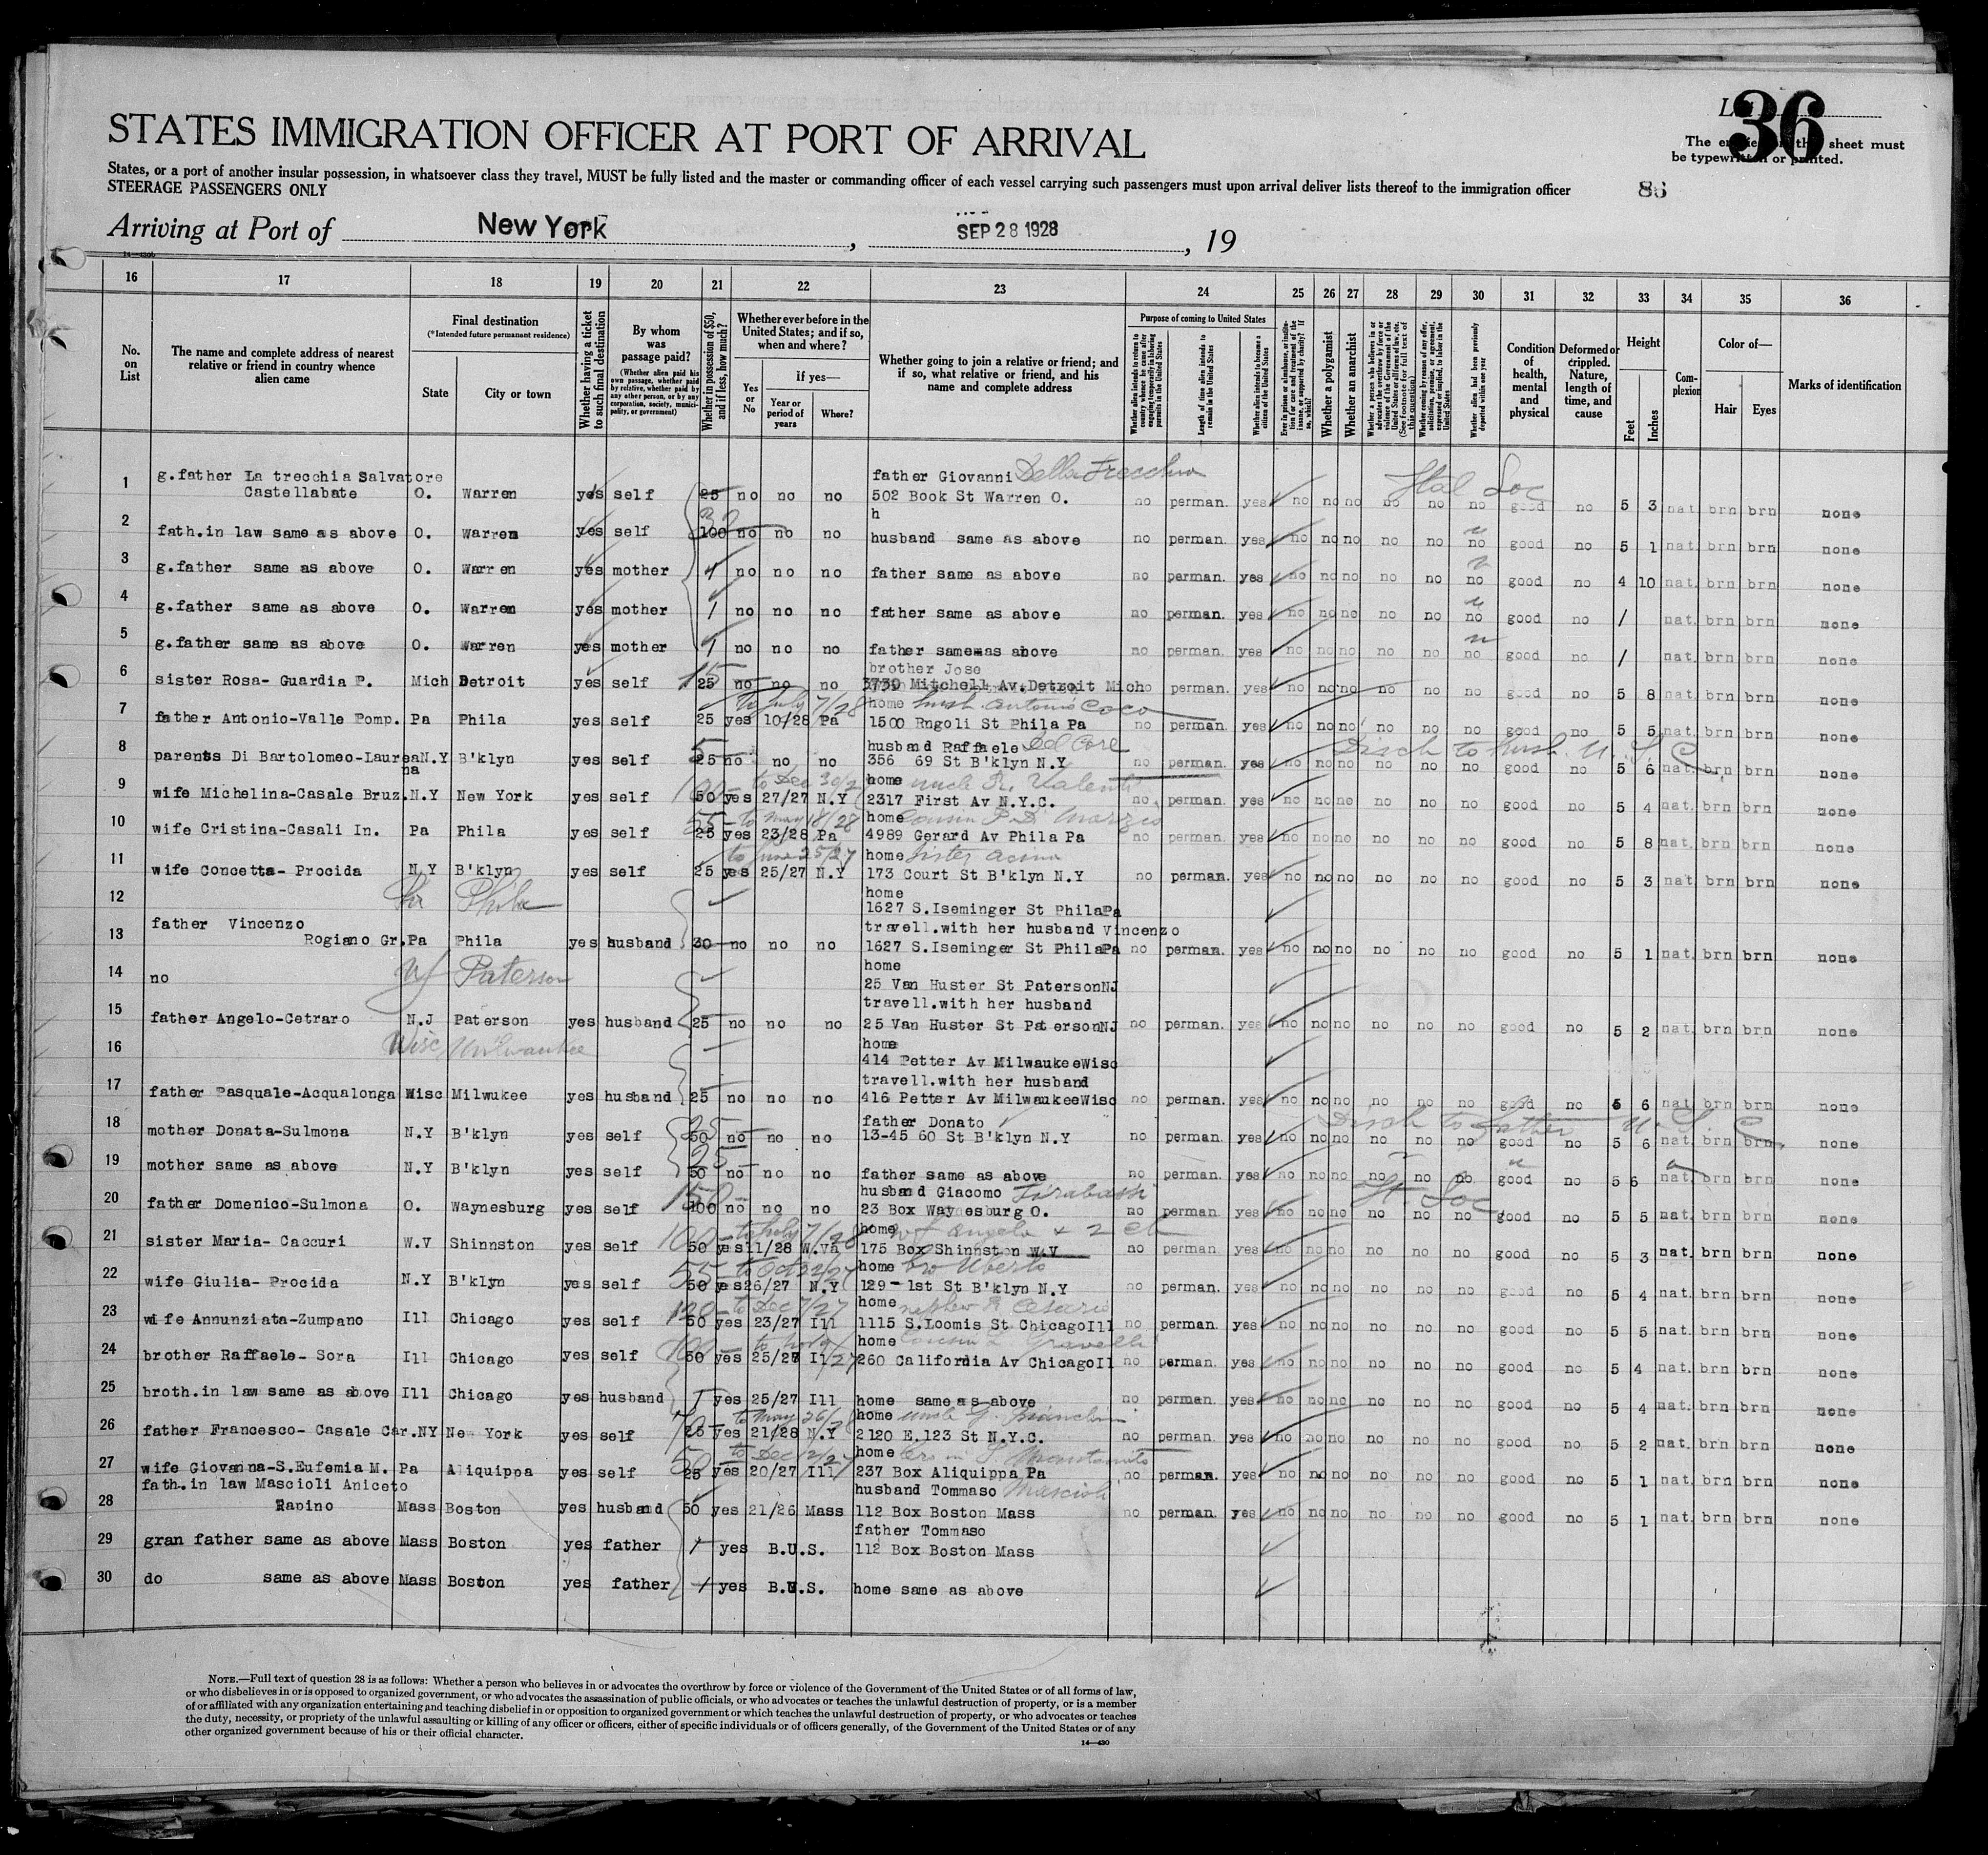 36
STATES IMMIGRATION OFFICER AT PORT OF ARRIVAL
The entries on this sheet must
be typewritten or printed.
States, or a port of another insular possession, in whatsoever class they travel, MUST be fully listed and the master or commanding officer of each vessel carrying such passengers must upon arrival deliver lists thereof to the immigration officer
STEERAGE PASSENGERS ONLY
86
Arriving at Port of New York, SEP 28 1928, 19
16 17 18 19 20 21 22 23 24 25 26 27 28 29 30 31 32 33 34 35 36
No. on List
The name and complete address of nearest relative or friend in country whence alien came
Final destination
(*Intended future permanent residence)
State
City or town
Whether having a ticket to such final destination
By whom was passage paid?
(Whether alien paid his own passage, whether paid by relative, whether paid by any other person, or by any corporation, society, municipality, or government)
Whether in possession of $50, and if less, how much?
Whether ever before in the United States; and if so, when and where?
Yes or No
If yes—
Year or period of years
Where?
Whether going to join a relative or friend; and if so, what relative or friend, and his name and complete address
Purpose of coming to United States
Whether alien intends to return to country whence he came after engaging temporarily in laboring pursuits in the United States
Length of time alien intends to remain in the United States
Whether alien intends to become a citizen of the United States
Whether a polygamist
Whether an anarchist
Condition of health, mental and physical
Deformed or crippled. Nature, length of time, and cause
Height
Feet
Inches
Complexion
Color of—
Hair
Eyes
Marks of identification
father Giovanni Della Trecchia
1 g.father La trecchia Salvatore
Castellabate O. Warren yes self 25 no no no 502 Book St Warren O. no perman. yes no no no no no no good no 5 3 nat. brn brn none
Ital Soc
h
2 fath.in law same as above O. Warren yes self 100 no no no husband same as above no perman. yes no no no no no no good no 5 1 nat. brn brn none
3 g.father same as above O. Warren yes mother 1 no no no father same as above no perman. yes no no no no no no good no 4 10 nat. brn brn none
4 g.father same as above O. Warren yes mother 1 no no no father same as above no perman. yes no no no no no no good no / nat. brn brn none
5 g.father same as above O. Warren yes mother 1 no no no father same as above no perman. yes no no no no no no good no / nat. brn brn none
brother Jose
6 sister Rosa- Guardia P. Mich Detroit yes self 15 25 no no no 3730 Mitchell Av.Detroit Mich no perman. yes no no no no no no good no 5 8 nat. brn brn none
to July 7/28 home husb. Antonio Coco
7 father Antonio-Valle Pomp. Pa Phila yes self 25 yes 10/28 Pa 1500 Rngoli St Phila Pa no perman. yes no no no no no no good no 5 5 nat. brn brn none
husband Raffaele Del Core
Disch to husb. U.S.C.
8 parents Di Bartolomeo-Laurea N.Y B'klyn yes self 5 25 no no no 356 69 St B'klyn N.Y no perman. yes no no no no no no good no 5 6 nat. brn brn none
na
100 to Dec 30/27 home uncle R. Valenti
9 wife Michelina-Casale Bruz. N.Y New York yes self 50 yes 27/27 N.Y 2317 First Av N.Y.C. no perman. yes no no no no no no good no 5 4 nat. brn brn none
55 to May 18/28 home cousin P. D. Marzio
10 wife Cristina-Casali In. Pa Phila yes self 25 yes 23/28 Pa 4989 Gerard Av Phila Pa no perman. yes no no no no no no good no 5 8 nat. brn brn none
to June 25/27 home sister
11 wife Concetta- Procida N.Y B'klyn yes self 25 yes 25/27 N.Y 173 Court St B'klyn N.Y no perman. yes no no no no no no good no 5 3 nat. brn brn none
home
12 Pa Phila 1627 S.Iseminger St PhilaPa
father Vincenzo travell.with her husband Vincenzo
13 Rogiano Gr. Pa Phila yes husband 30 no no no 1627 S.Iseminger St PhilaPa no perman. yes no no no no no no good no 5 1 nat. brn brn none
home
14 no NJ Paterson 25 Van Huster St PatersonNJ
travell.with her husband
15 father Angelo-Cetraro N.J Paterson yes husband 25 no no no 25 Van Huster St PatersonNJ no perman. yes no no no no no no good no 5 2 nat. brn brn none
home
16 Wisc Milwaukee 414 Petter Av MilwaukeeWisc
travell.with her husband
17 father Pasquale-Acqualonga Wisc Milwukee yes husband 25 no no no 416 Petter Av MilwaukeeWisc no perman. yes no no no no no no good no 5 6 nat. brn brn none
father Donato
Disch to father U.S.C.
18 mother Donata-Sulmona N.Y B'klyn yes self 50 no no no 13-45 60 St B'klyn N.Y no perman. yes no no no no no no good no 5 6 nat. brn brn none
19 mother same as above N.Y B'klyn yes self 25 50 no no no father same as above no perman. yes no no no no no no good no 5 6 nat. brn brn none
husband Giacomo Tirabassi
It. Soc
20 father Domenico-Sulmona O. Waynesburg yes self 150 100 no no no 23 Box Waynesburg O. no perman. yes no no no no no no good no 5 5 nat. brn brn none
100 to July 7/28 home wf Angela + 2 ch
21 sister Maria- Caccuri W.V Shinnston yes self 50 yes 11/28 W.Va 175 Box Shinnston W.V no perman. yes no no no no no no good no 5 3 nat. brn brn none
55 to Oct 22/27 home bro Uberto
22 wife Giulia- Procida N.Y B'klyn yes self 50 yes 26/27 N.Y 129-1st St B'klyn N.Y no perman. yes no no no no no no good no 5 4 nat. brn brn none
120 to Dec 7/27 home nephew R. Cesario
23 wife Annunziata-Zumpano Ill Chicago yes self 50 yes 23/27 Ill 1115 S.Loomis St ChicagoIll no perman. yes no no no no no no good no 5 5 nat. brn brn none
100 home cousin
24 brother Raffaele- Sora Ill Chicago yes self 50 yes 25/27 Ill 260 California Av ChicagoIl no perman. yes no no no no no no good no 5 4 nat. brn brn none
25 broth.in law same as above Ill Chicago yes husband 1 yes 25/27 Ill home same as above no perman. yes no no no no no no good no 5 4 nat. brn brn none
70 to May 26/28 home uncle G.
26 father Francesco- Casale Car. NY New York yes self 25 yes 21/28 N.Y 2120 E.123 St N.Y.C. no perman. yes no no no no no no good no 5 2 nat. brn brn none
50 to Dec 12/27 home
27 wife Giovanna-S.Eufemia M. Pa Aliquippa yes self 25 yes 20/27 Ill 237 Box Aliquippa Pa no perman. yes no no no no no no good no 5 1 nat. brn brn none
fath.in law Mascioli Aniceto husband Tommaso Mascioli
28 Rapino Mass Boston yes husband 50 yes 21/26 Mass 112 Box Boston Mass no perman. yes no no no no no no good no 5 1 nat. brn brn none
father Tommaso
29 gran father same as above Mass Boston yes father 1 yes B.U.S. 112 Box Boston Mass
30 do same as above Mass Boston yes father 1 yes B.U.S. home same as above
NOTE.—Full text of question 28 is as follows: Whether a person who believes in or advocates the overthrow by force or violence of the Government of the United States or of all forms of law,
or who disbelieves in or is opposed to organized government, or who advocates the assassination of public officials, or who advocates or teaches the unlawful destruction of property, or is a member
of or affiliated with any organization entertaining and teaching disbelief in or opposition to organized government or which teaches the unlawful destruction of property, or who advocates or teaches
the duty, necessity, or propriety of the unlawful assaulting or killing of any officer or officers, either of specific individuals or of officers generally, of the Government of the United States or of any
other organized government because of his or their official character.
14—430